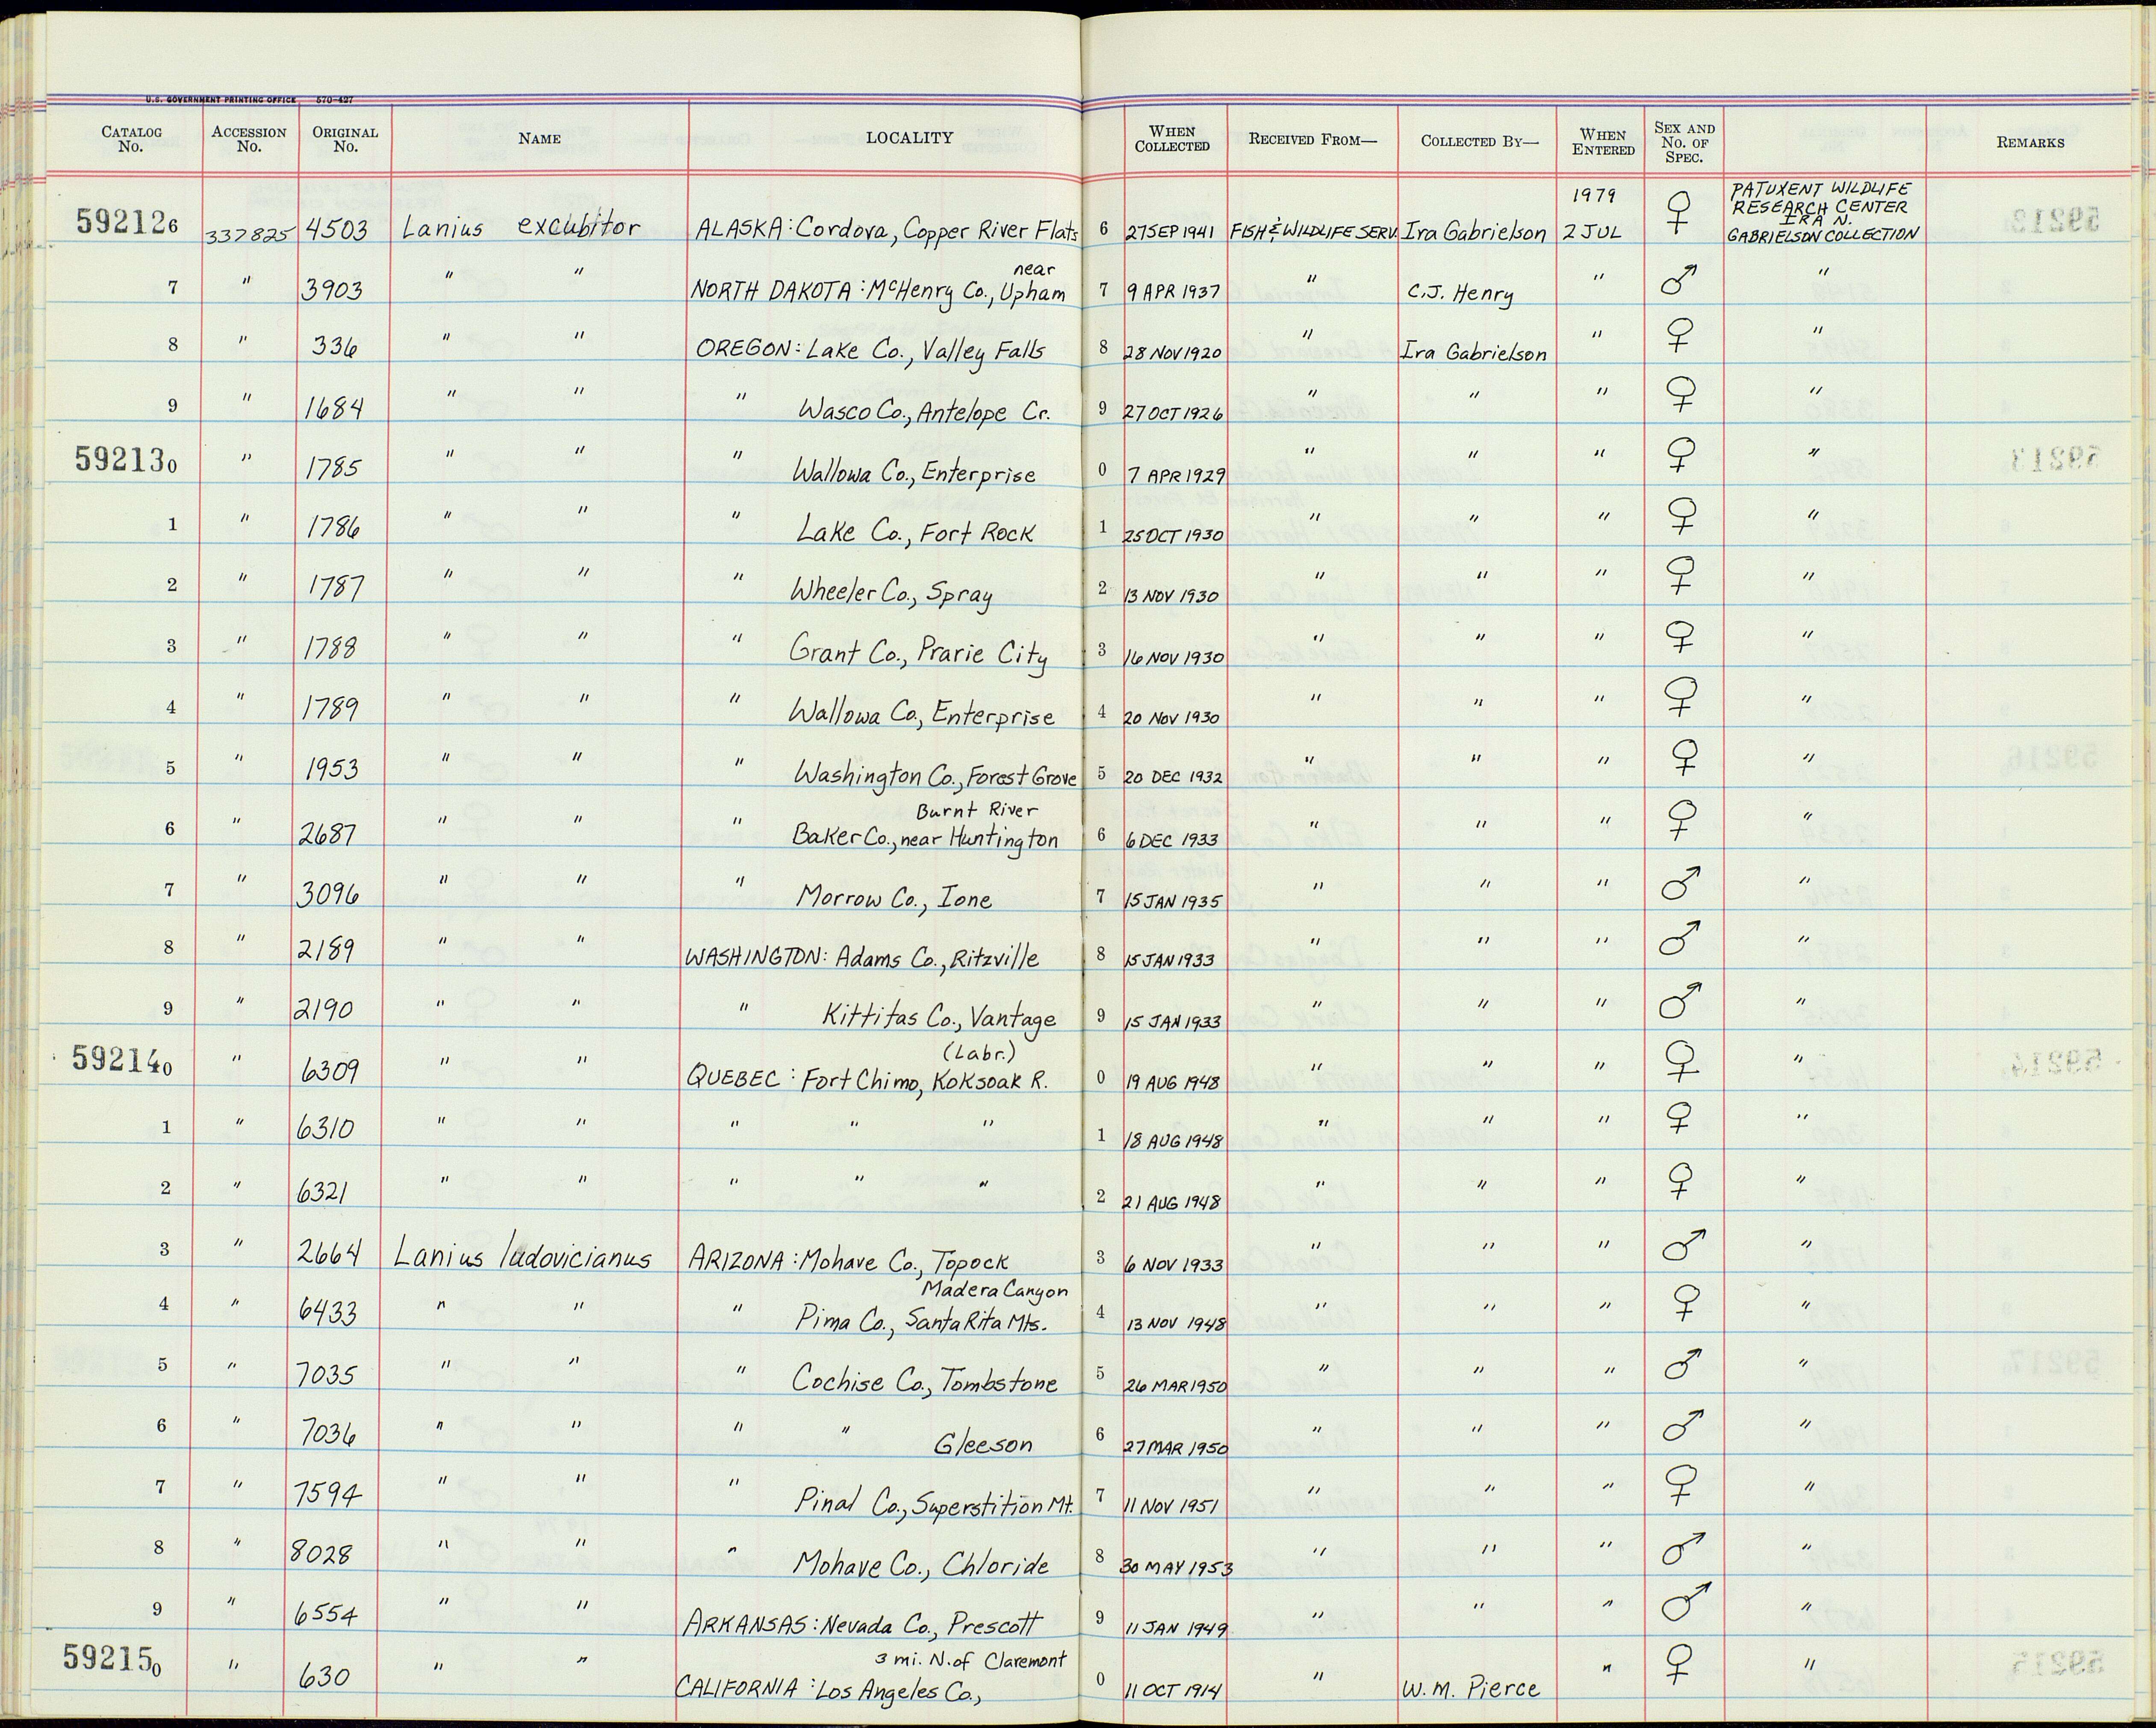 U.S. GOVERNMENT PRINTING OFFICE 570-427
CATALOG No. ACCESSION No. ORIGINAL No. NAME LOCALITY WHEN COLLECTED RECEIVED FROM— COLLECTED BY— WHEN ENTERED SEX AND No. OF SPEC. REMARKS
592126 337825 4503 Lanius excubitor ALASKA: Cordova, Copper River Flats 6 27 SEP 1941 FISH & WILDLIFE SERV. Ira Gabrielson 1979 2 JUL ♀ PATUXENT WILDLIFE RESEARCH CENTER IRA N. GABRIELSON COLLECTION
7 " 3903 " " NORTH DAKOTA: McHenry Co., near Upham 7 9 APR 1937 " C.J. Henry " ♂ "
8 " 336 " " OREGON: Lake Co., Valley Falls 8 28 NOV 1920 " Ira Gabrielson " ♀ "
9 " 1684 " " " Wasco Co., Antelope Cr. 9 27 OCT 1926 " " " ♀ "
592130 " 1785 " " " Wallowa Co., Enterprise 0 7 APR 1929 " " " ♀ "
1 " 1786 " " " Lake Co., Fort Rock 1 25 OCT 1930 " " " ♀ "
2 " 1787 " " " Wheeler Co., Spray 2 13 NOV 1930 " " " ♀ "
3 " 1788 " " " Grant Co., Prarie City 3 16 NOV 1930 " " " ♀ "
4 " 1789 " " " Wallowa Co., Enterprise 4 20 NOV 1930 " " " ♀ "
5 " 1953 " " " Washington Co., Forest Grove 5 20 DEC 1932 " " " ♀ "
6 " 2687 " " " Burnt River Baker Co., near Huntington 6 6 DEC 1933 " " " ♀ "
7 " 3096 " " " Morrow Co., Ione 7 15 JAN 1935 " " " ♂ "
8 " 2189 " " WASHINGTON: Adams Co., Ritzville 8 15 JAN 1933 " " " ♂ "
9 " 2190 " " " Kittitas Co., Vantage 9 15 JAN 1933 " " " ♂ "
592140 " 6309 " " QUEBEC: (Labr.) Fort Chimo, Koksoak R. 0 19 AUG 1948 " " " ♀ "
1 " 6310 " " " " " 1 18 AUG 1948 " " " ♀ "
2 " 6321 " " " " " 2 21 AUG 1948 " " " ♀ "
3 " 2664 Lanius ludovicianus ARIZONA: Mohave Co., Topock 3 6 NOV 1933 " " " ♂ "
4 " 6433 " " " Madera Canyon Pima Co., Santa Rita Mts. 4 13 NOV 1948 " " " ♀ "
5 " 7035 " " " Cochise Co., Tombstone 5 26 MAR 1950 " " " ♂ "
6 " 7036 " " " " Gleeson 6 27 MAR 1950 " " " ♂ "
7 " 7594 " " " Pinal Co., Superstition Mt. 7 11 NOV 1951 " " " ♀ "
8 " 8028 " " " Mohave Co., Chloride 8 30 MAY 1953 " " " ♂ "
9 " 6554 " " ARKANSAS: Nevada Co., Prescott 9 11 JAN 1949 " " " ♂ "
592150 " 630 " " CALIFORNIA: Los Angeles Co., 3 mi. N. of Claremont 0 11 OCT 1914 " W. M. Pierce " ♀ "